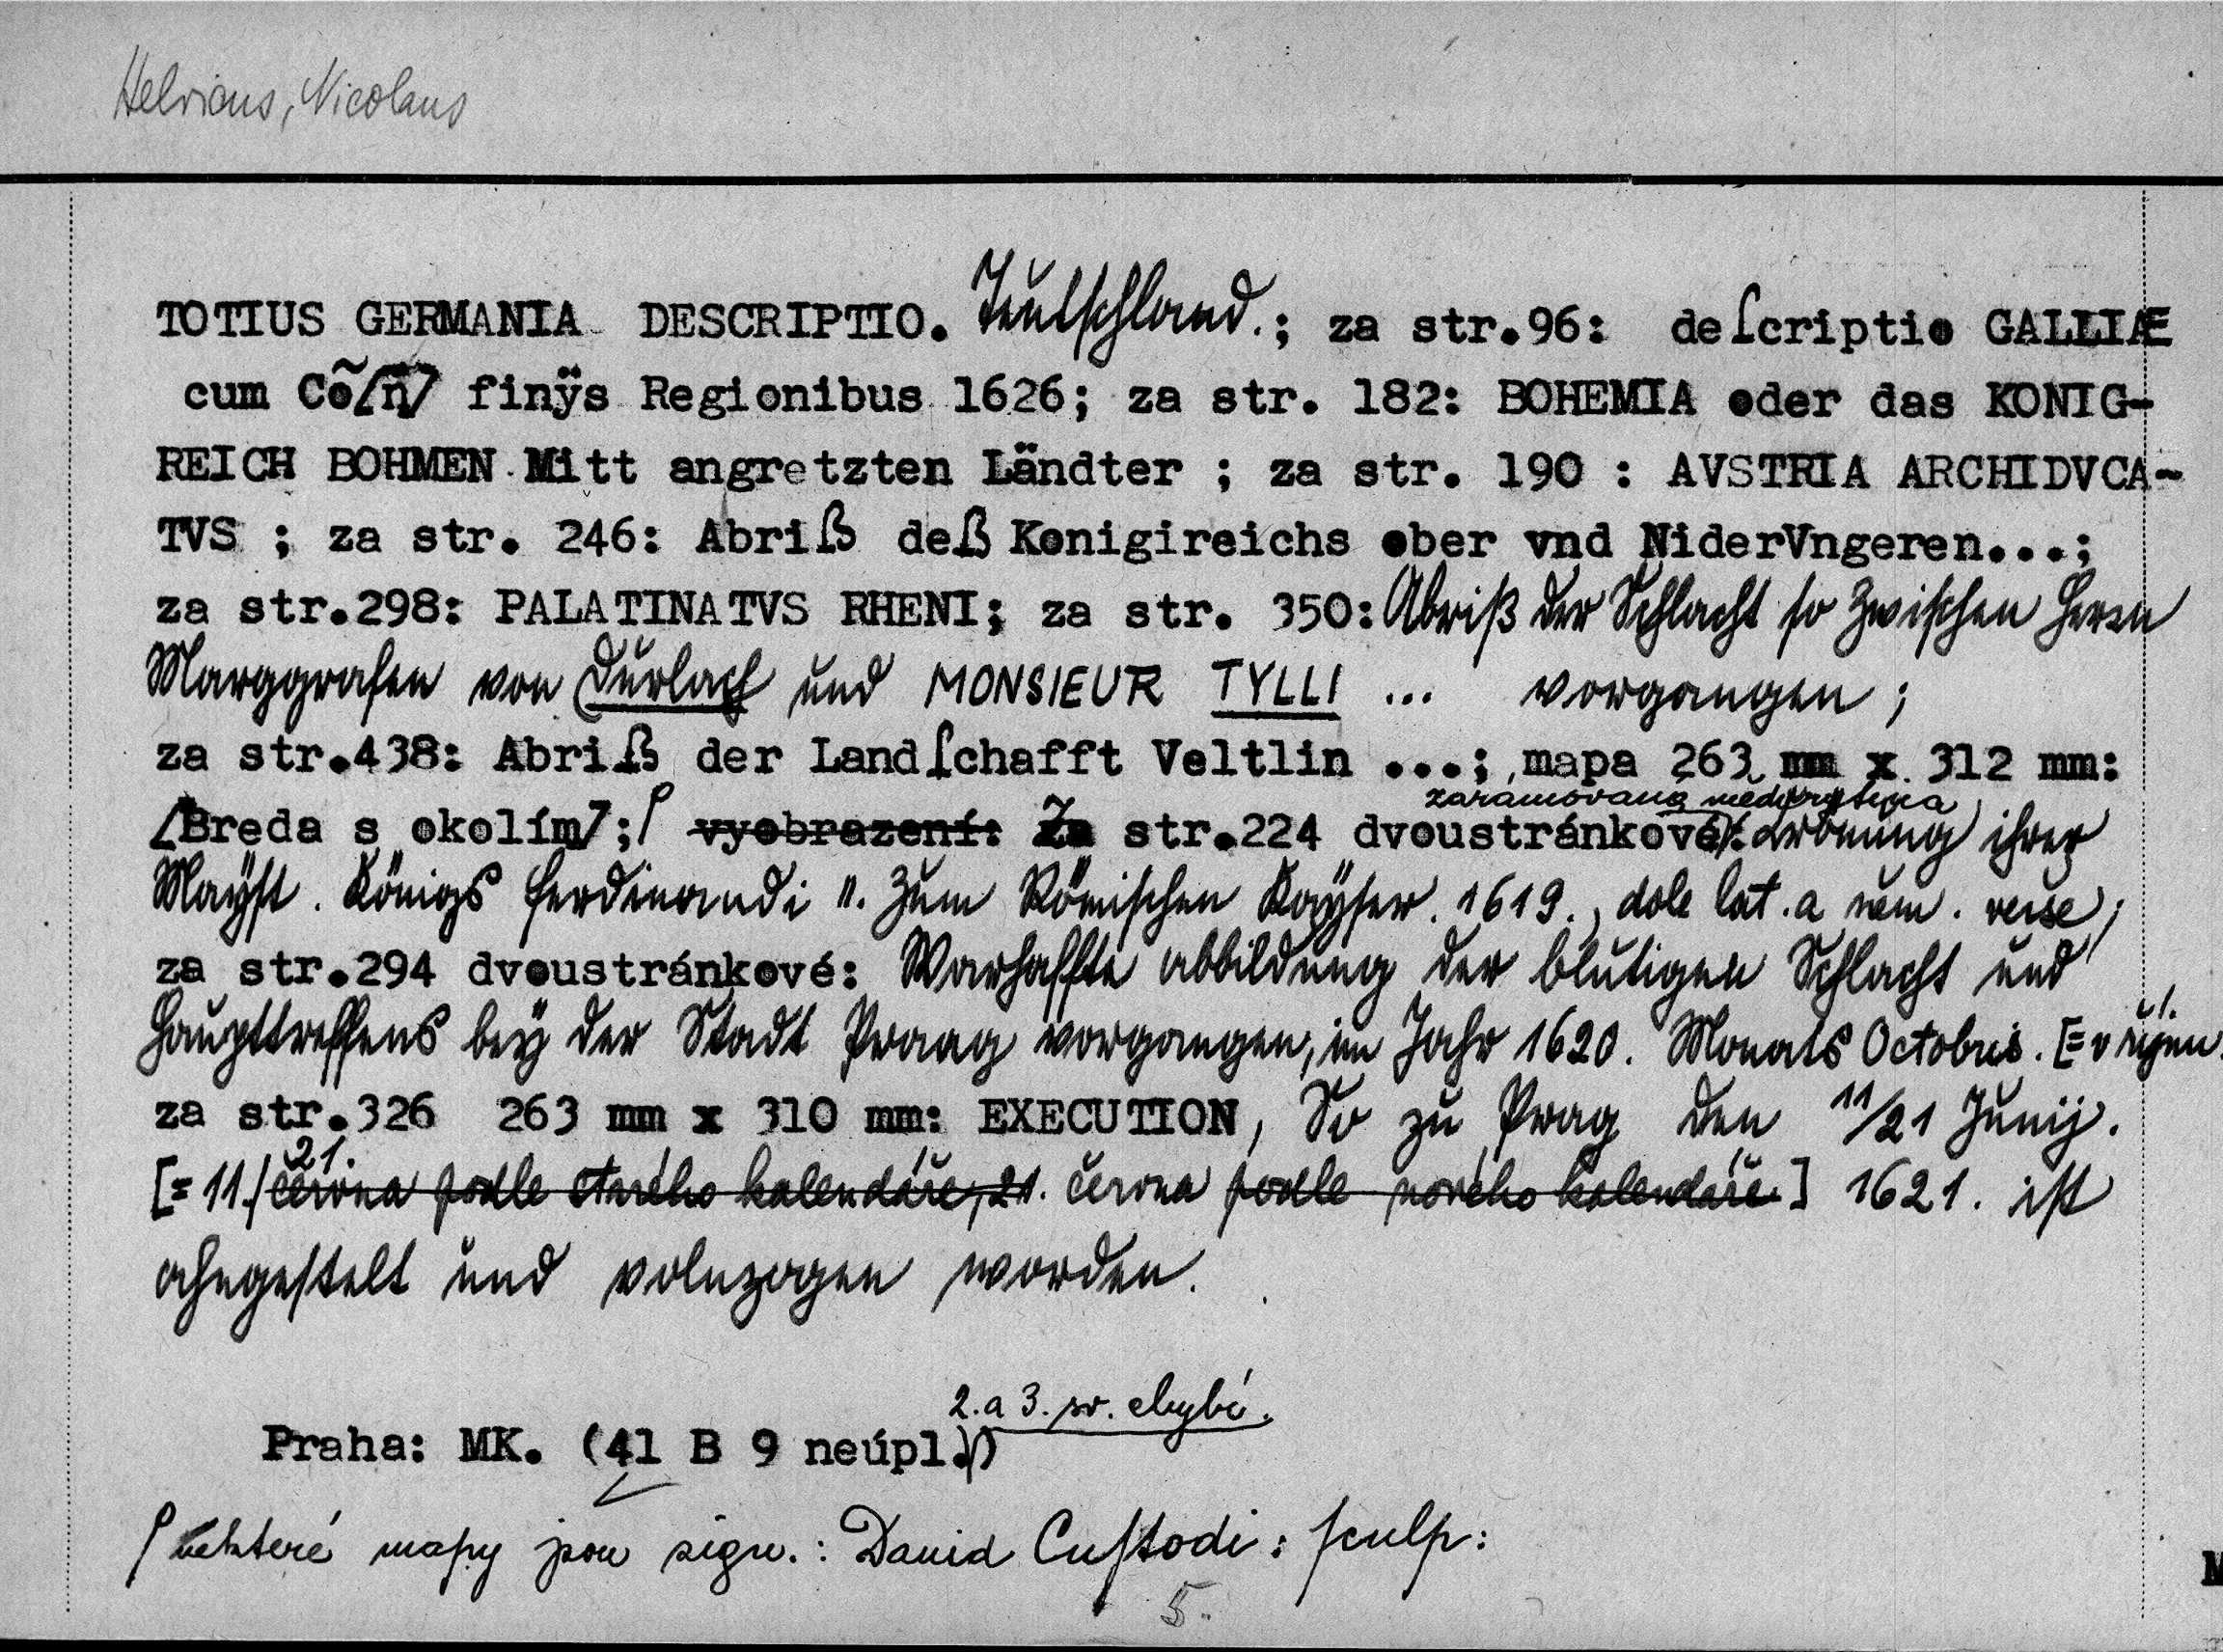 Helvicus, Nicolaus
TOTIUS GERMANIA DESCRIPTIO. Teutschland.; za str.96: deſcriptio GALLIÆ
cum Cõ[n] finÿs Regionibus 1626; za str. 182: BOHEMIA oder das KONIG-
REICH BOHMEN Mitt angretzten Ländter ; za str. 190 : AVSTRIA ARCHIDVCA-
TVS ; za str. 246: Abriß deß Konigireichs ober vnd NiderVngeren...;
za str.298: PALATINATVS RHENI; za str. 350: Abriß der Schlacht so zwischen Herrn
Marggrafen von Durlach und MONSIEUR TYLLI ... vorgangen;
za str.438: Abriß der Landſchafft Veltlin ...; mapa 263 mm x 312 mm:
zarámovaná mědirytina
[Breda s okolím]; vyobrazení: Za str.224 dvoustránkové: Krönung ihrer
Mayst. Königs Ferdinandi II. zum Römischen Kayser. 1619., dole lat. a něm. verše;
za str.294 dvoustránkové: Warhaffte abbildung der blutigen Schlacht und
Haupttreffens bey der Stadt Praag vorgangen, im Jahr 1620. Monats Octobris. [= v říjnu.
za str.326 263 mm x 310 mm: EXECUTION, So zu Prag den 11/21 Junij.
21.
[= 11./ června podle starého kalendáře, 21. června podle nového kalendáře] 1621. ist
ahngestelt und volnzogen worden.
2. a 3. sv. chybí.
Praha: MK. (41 B 9 neúpl.)
některé mapy jsou sign.: Dauid Cuſtodi: ſculp:
5.
M